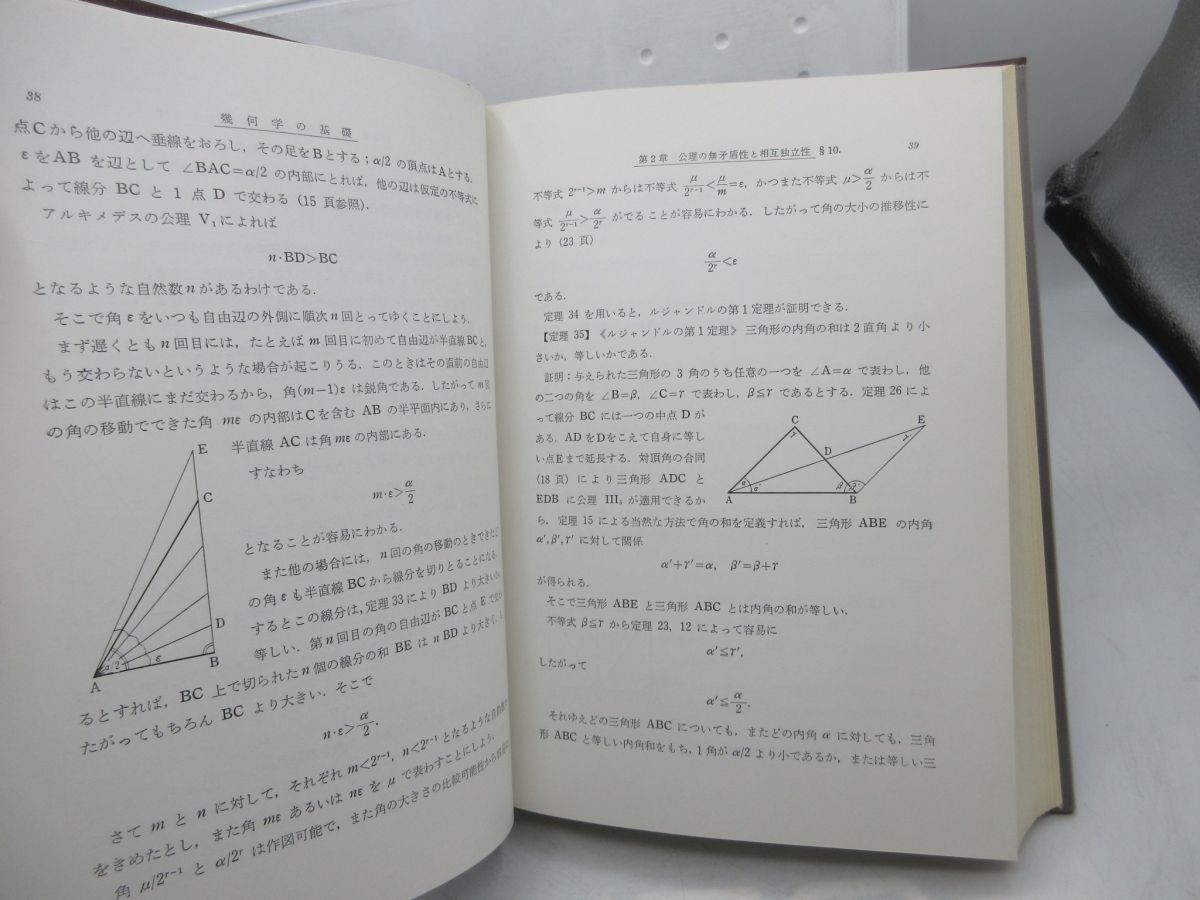 38
幾何学の基礎
点Cから他の辺へ垂線をおろし,その足をBとする;α/2 の頂点はAとする.
εをAB を辺として ∠BAC=α/2 の内部にとれば,他の辺は仮定の不等式に
よって線分 BC と 1 点 D で交わる (15 頁参照).
アルキメデスの公理 V₁によれば
n·BD>BC
となるような自然数nがあるわけである.
そこで角εをいつも自由辺の外側に順次n回とってゆくことにしよう.
まず遅くともn回目には,たとえばm回目に初めて自由辺が半直線BCと,
もう交わらないというような場合が起こりうる.このときはその直前の自由辺
はこの半直線にまだ交わるから,角(m−1)εは鋭角である.したがってm回
の角の移動でできた角 mε の内部はCを含む AB の半平面内にあり,さらに
半直線 AC は角mεの内部にある.
すなわち
m·ε>α/2
となることが容易にわかる.
また他の場合には,n回の角の移動のときできたど
の角εも半直線BCから線分を切りとることになる.
するとこの線分は,定理33により BD より大きいか,
等しい.第n回目の角の自由辺がBCと点Eで交わ
るとすれば,BC 上で切られたn個の線分の和 BE は nBD より大きく,し
たがってもちろん BC より大きい.そこで
n·ε>α/2.
さて m と n に対して,それぞれ m<2ʳ⁻¹, n<2ʳ⁻¹ となるような自然数r
をきめたとし,また角 mε あるいは nε を μ で表わすことにしよう.
角 μ/2ʳ⁻¹ と α/2ʳ は作図可能で,また角の大きさの比較可能性から
E
C
D
B
A
α/2
ε
第2章 公理の無矛盾性と相互独立性 §10.
39
不等式 2ʳ⁻¹>m からは不等式 μ/2ʳ⁻¹<μ/m=ε,かつまた不等式 μ>α/2 からは不
等式 μ/2ʳ⁻¹>α/2ʳ がでることが容易にわかる.したがって角の大小の推移性に
より (23 頁)
α/2ʳ<ε
である.
定理 34 を用いると,ルジャンドルの第1定理が証明できる.
【定理 35】《ルジャンドルの第1定理》 三角形の内角の和は2直角より小
さいか,等しいかである.
証明:与えられた三角形の 3 角のうち任意の一つを ∠A=α で表わし,他
の二つの角を ∠B=β, ∠C=γ で表わし,β≦γ であるとする.定理 26 によ
って線分 BC には一つの中点 D が
ある.ADをDをこえて自身に等し
い点Eまで延長する.対頂角の合同
(18 頁) により三角形 ADC と
EDB に公理 III₅ が適用できるか
ら,定理 15 による当然な方法で角の和を定義すれば,三角形 ABE の内角
α′,β′,γ′ に対して関係
α′+γ′=α, β′=β+γ
が得られる.
そこで三角形 ABE と三角形 ABC とは内角の和が等しい.
不等式 β≦γ から定理 23, 12 によって容易に
α′≦γ′,
したがって
α′≦α/2.
それゆえどの三角形 ABC についても,またどの内角 α に対しても,三角
形 ABC と等しい内角和をもち,1 角が α/2 より小であるか,または等しい三
C
E
γ
γ′
D
α
α′
β
β′
A
B